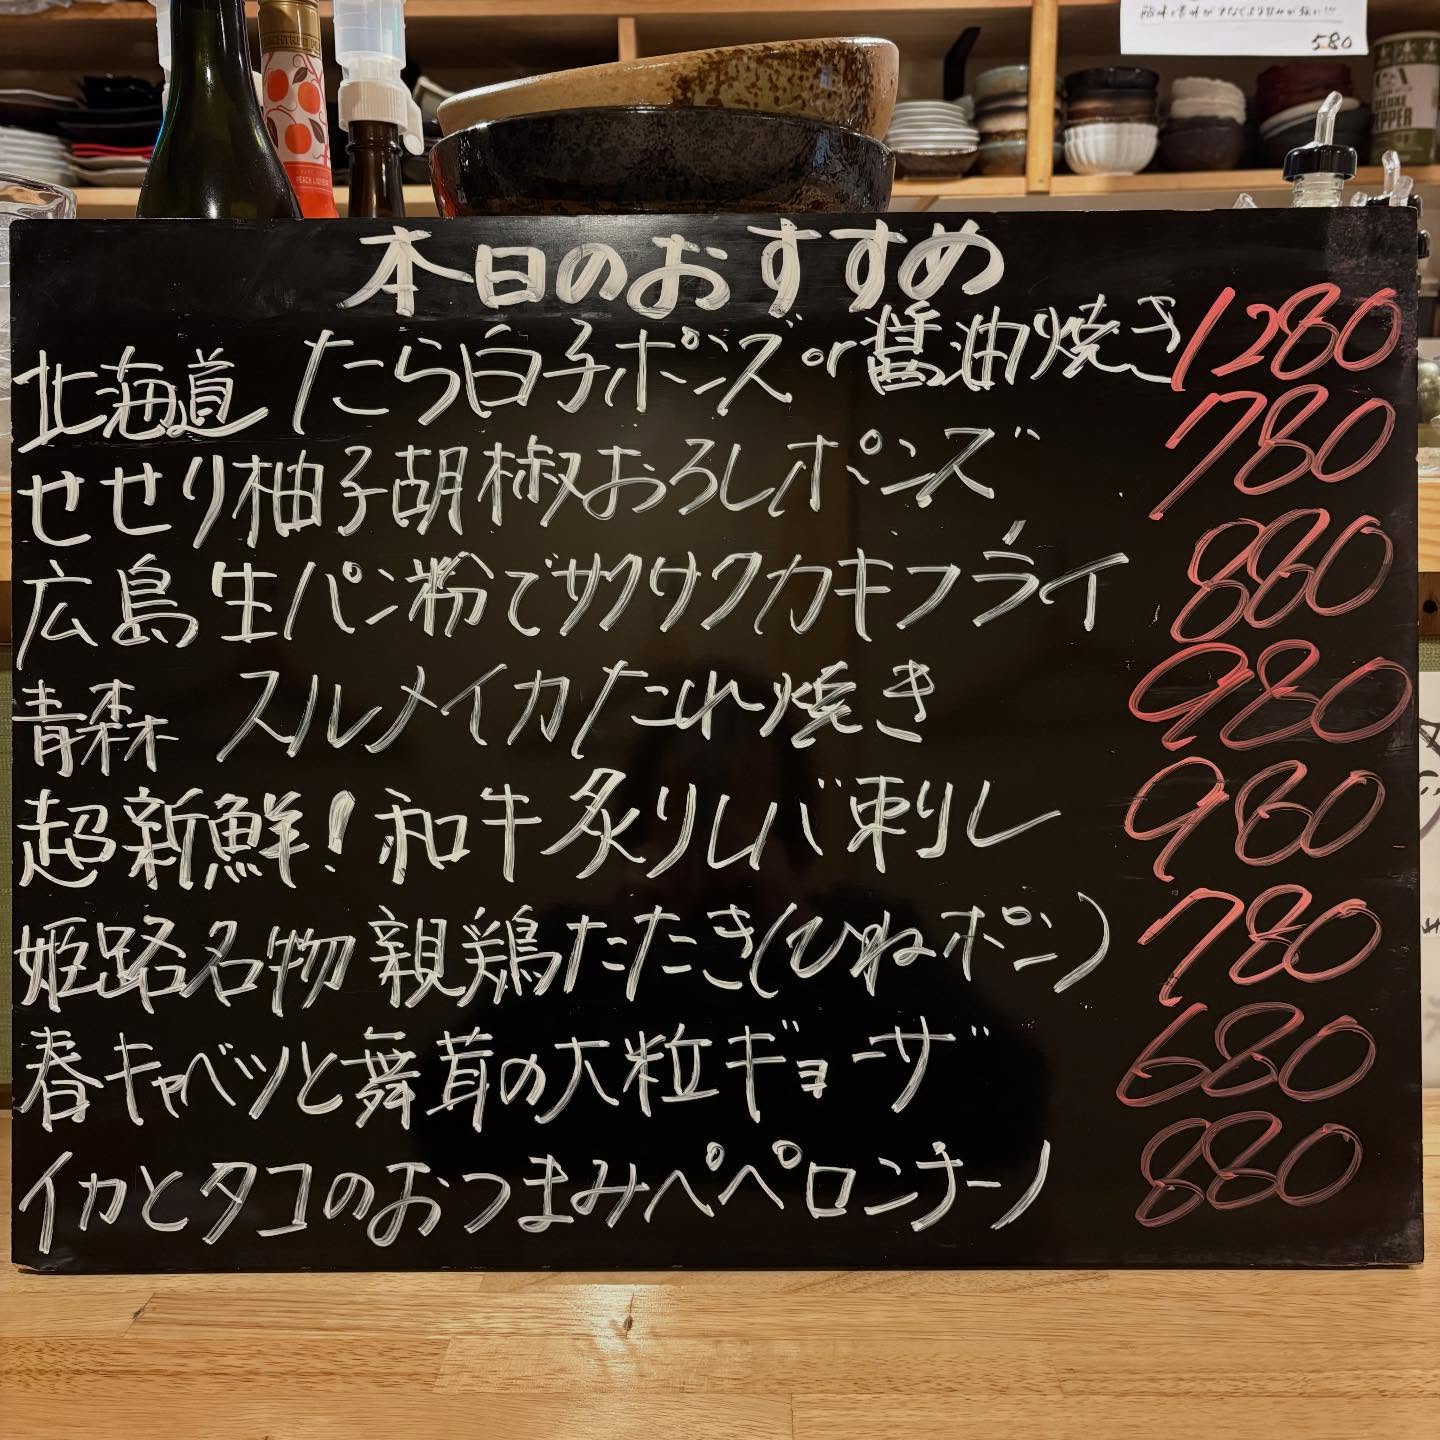 580
PEACH LIQUEUR
本日のおすすめ
北海道 たら白子ポンズor醤油焼き 1280
せせり柚子胡椒おろしポンズ 780
広島 生パン粉でサクサクカキフライ 880
青森 スルメイカたれ焼き 980
超新鮮!和牛炙りレバ刺し 980
姫路名物 親鶏たたき(ひねポン) 780
春キャベツと舞茸の大粒ギョーザ 680
イカとタコのおつまみペペロンチーノ 880